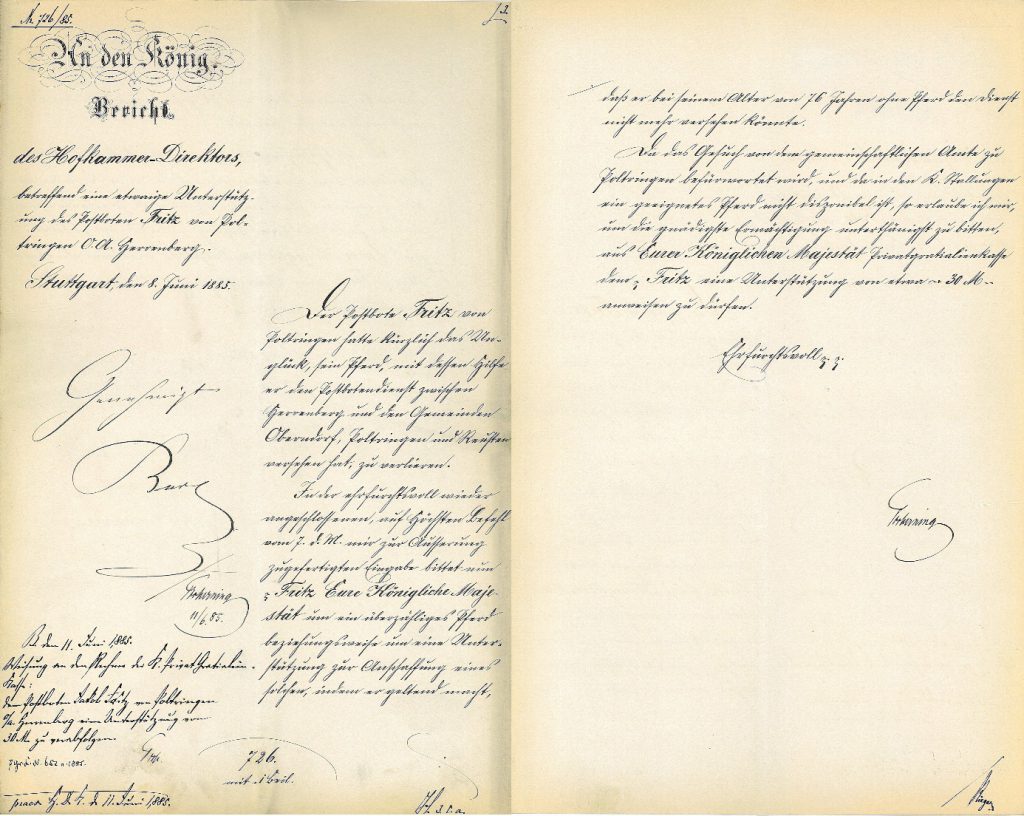 Nr. 726/85.
An den König.
Bericht
des Hofkammer-Direktors,
betreffend eine etwaige Unterstütz-
ung des Postboten Fritz von Pol-
tringen O.A. Herrenberg.
Stuttgart, den 8. Juni 1885.
Der Postbote Fritz von
Poltringen hatte kürzlich das Un-
glück, sein Pferd, mit dessen Hilfe
er den Postbotendienst zwischen
Herrenberg und den Gemeinden
Oberndorf, Poltringen und Reusten
versehen hat, zu verlieren.
In der ehrfurchtsvoll wieder
angeschlossenen, auf Höchsten Befehl
vom 7. d. M. mir zur Äusserung
zugefertigten Eingabe bittet nun
Fritz Eure Königliche Maje-
stät um ein überzähliges Pferd
beziehungsweise um eine Unter-
stützung zur Anschaffung eines
solchen, indem er geltend macht,
Genehmigt
11/6.85.
B. den 11. Juni 1885.
Weisung an den Rechner der K. Privat Gratialien-
Kasse:
dem Postboten Jakob Fritz von Poltringen
O/A. Herrenberg eine Unterstützung von
30 M. zu verabfolgen.
726.
mit 1 Beil.
den 11. Juni 1885.
daß er bei seinem Alter von 76 Jahren ohne Pferd den Dienst
nicht mehr versehen könnte.
Da das Gesuch von dem gemeinschaftlichen Amte zu
Poltringen befürwortet wird, und da in den K. Stallungen
ein geeignetes Pferd nicht disponibel ist, so erlaube ich mir,
um die gnädigste Ermächtigung unterthänigst zu bitten,
aus Eurer Königlichen Majestät Privatgratialienkasse
dem Fritz eine Unterstützung von etwa - 30 M -
anweisen zu dürfen.
Ehrfurchtsvoll